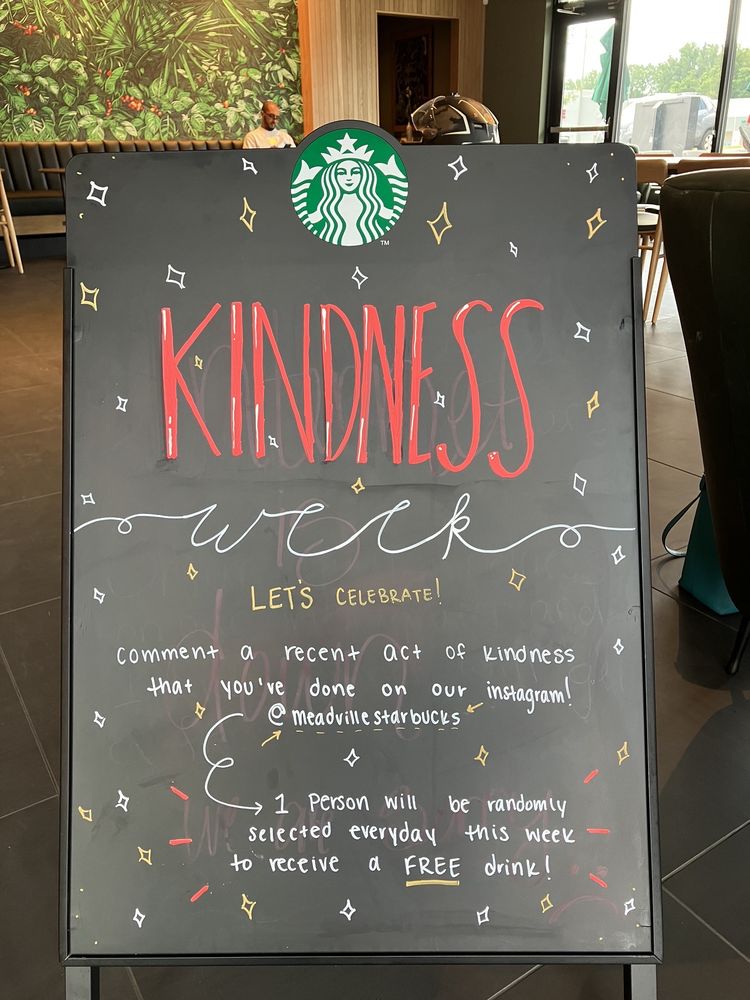 TM
KINDNESS
week
LET'S CELEBRATE!
comment a recent act of kindness
that you've done on our instagram!
@meadvillestarbucks
1 Person will be randomly
selected everyday this week
to receive a FREE drink!